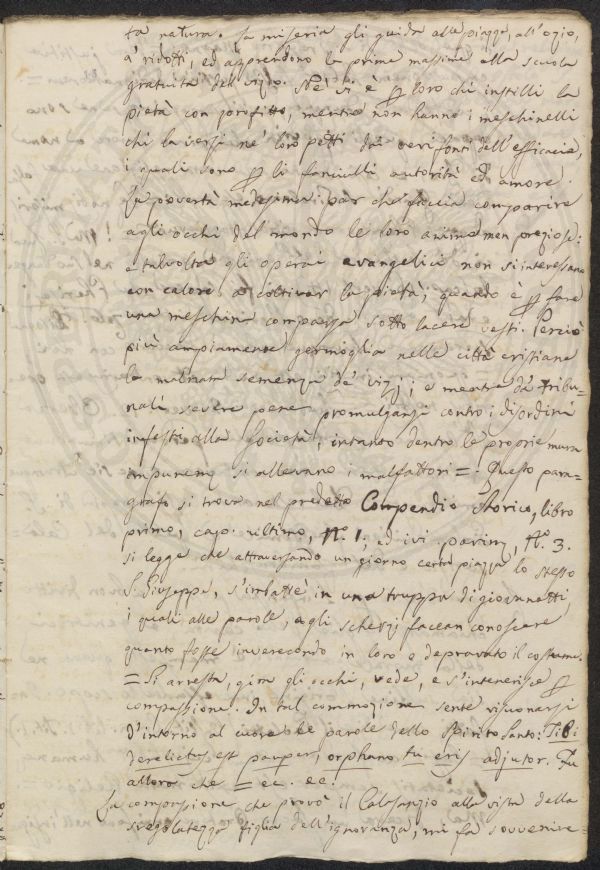 ta natura. La miseria gli guida alle piazze, all'ozio,
a' ridotti, ed apprendono le prime massime alla scuola
gratuita del vizio. Nè vi è p loro chi instilli la
pietà con profitto, mentre non hanno i meschinelli
chi la versi ne' loro petti dai veri fonti dell'efficacia,
i quali sono p li fanciulli autorità ed amore.
La povertà medesima par che faccia comparire
agli occhi del mondo le loro anime men preziose:
e talvolta gli operai evangelici non si interessano
con calore a coltivar la pietà, quando è p fare
una meschina comparsa sotto lacere vesti. Perciò
più ampiamente germoglia nelle città cristiane
la malnata semenza de' vizj; e mentre da' tribu=
nali severe pene promulgansi contro i disordini
infesti alla società, intanto dentro le proprie mura
impunem. si allevano i malfattori =. Questo para=
grafo si trova nel predetto Compendio storico, libro
primo, cap. ultimo, N.º 1. ed ivi parim, N.º 3.
si legge che attraversando un giorno certa piazza lo stesso
S. Giuseppe, s'imbattè in una truppa di giovanetti
i quali alle parole, agli scherzj facean conoscere
quanto fosse inverecondo in loro e depravato il costume.
= Si arresta, gira gli occhi, vede, e s'intenerisce p
compassione. In tal commozione sente risuonarsi
d'intorno al cuore le parole dello Spirito Santo: Tibi
derelictus est pauper, orphano tu eris adjutor. Fu
allora che = ec. ec.
La compassione che provò il Calasanzio alla vista della
sregolatezza figlia dell'ignoranza, mi fa sovvenire=